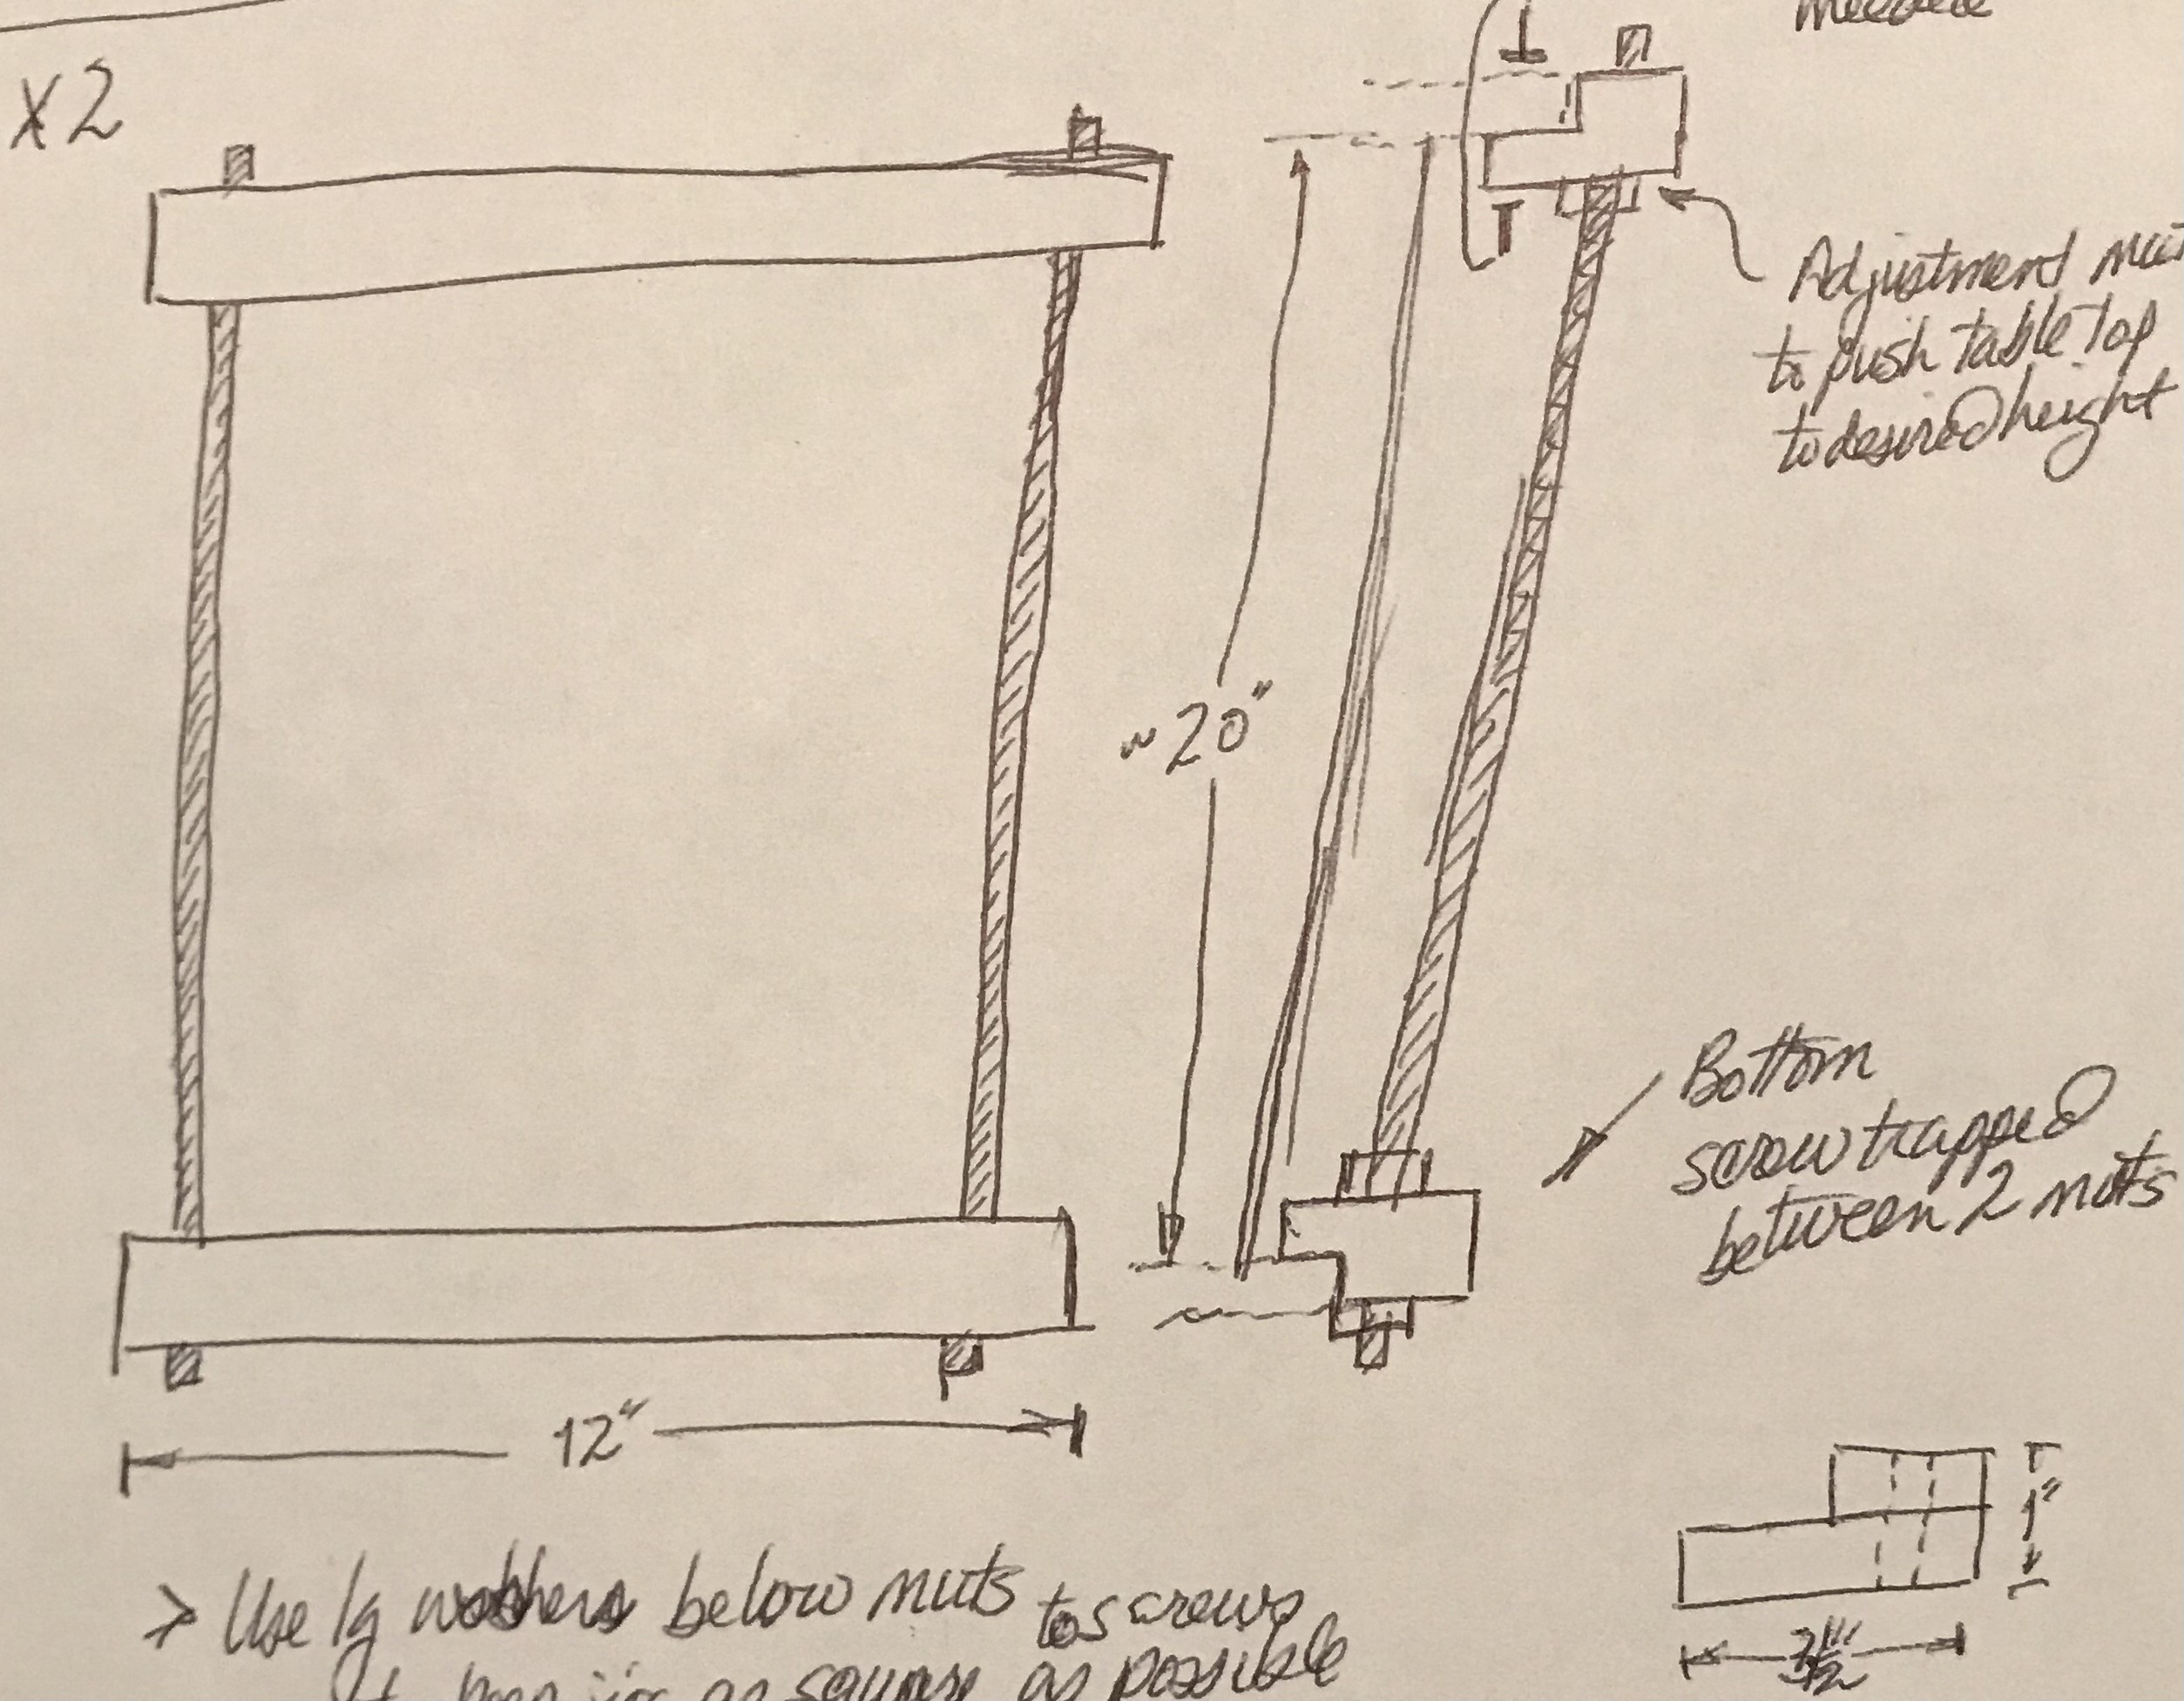 needed
X2
Adjustment nut
to push table top
to desired height
~20"
Bottom
screw trapped
between 2 nuts
12"
1"
> Use lg washers below nuts to screws
as square as possible